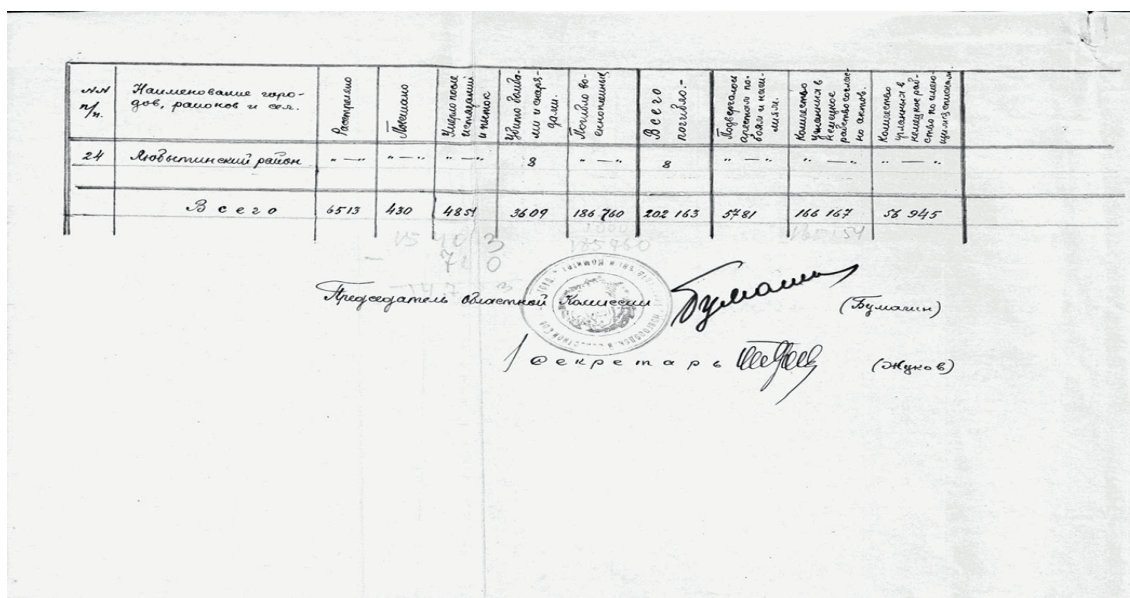 NN п/п. | Наименование горо-дов, районов и сел. | Расстреляно | Повешано | Умерло после истязаний и пыток | Убито бомба-ми и снаря-дами. | Погибло во-еннопленных | Всего погибло.= | Подвергалось арестам по-боям и наси-лиям. | Количество угнанных в немецкое рабство соглас-но актов. | Количество угнанных в немецкое раб-ство по имею-щимся спискам.
24 | Любытинский район | " — " | " — " | " — " | 8 | " — " | 8 | " — " | " — " | " — "
Всего | 6513 | 430 | 4851 | 3609 | 186 760 | 202 163 | 5781 | 166 167 | 56 945
15 403
720
175460
Председатель областной Комиссии (Бумагин)
Секретарь (Жуков)